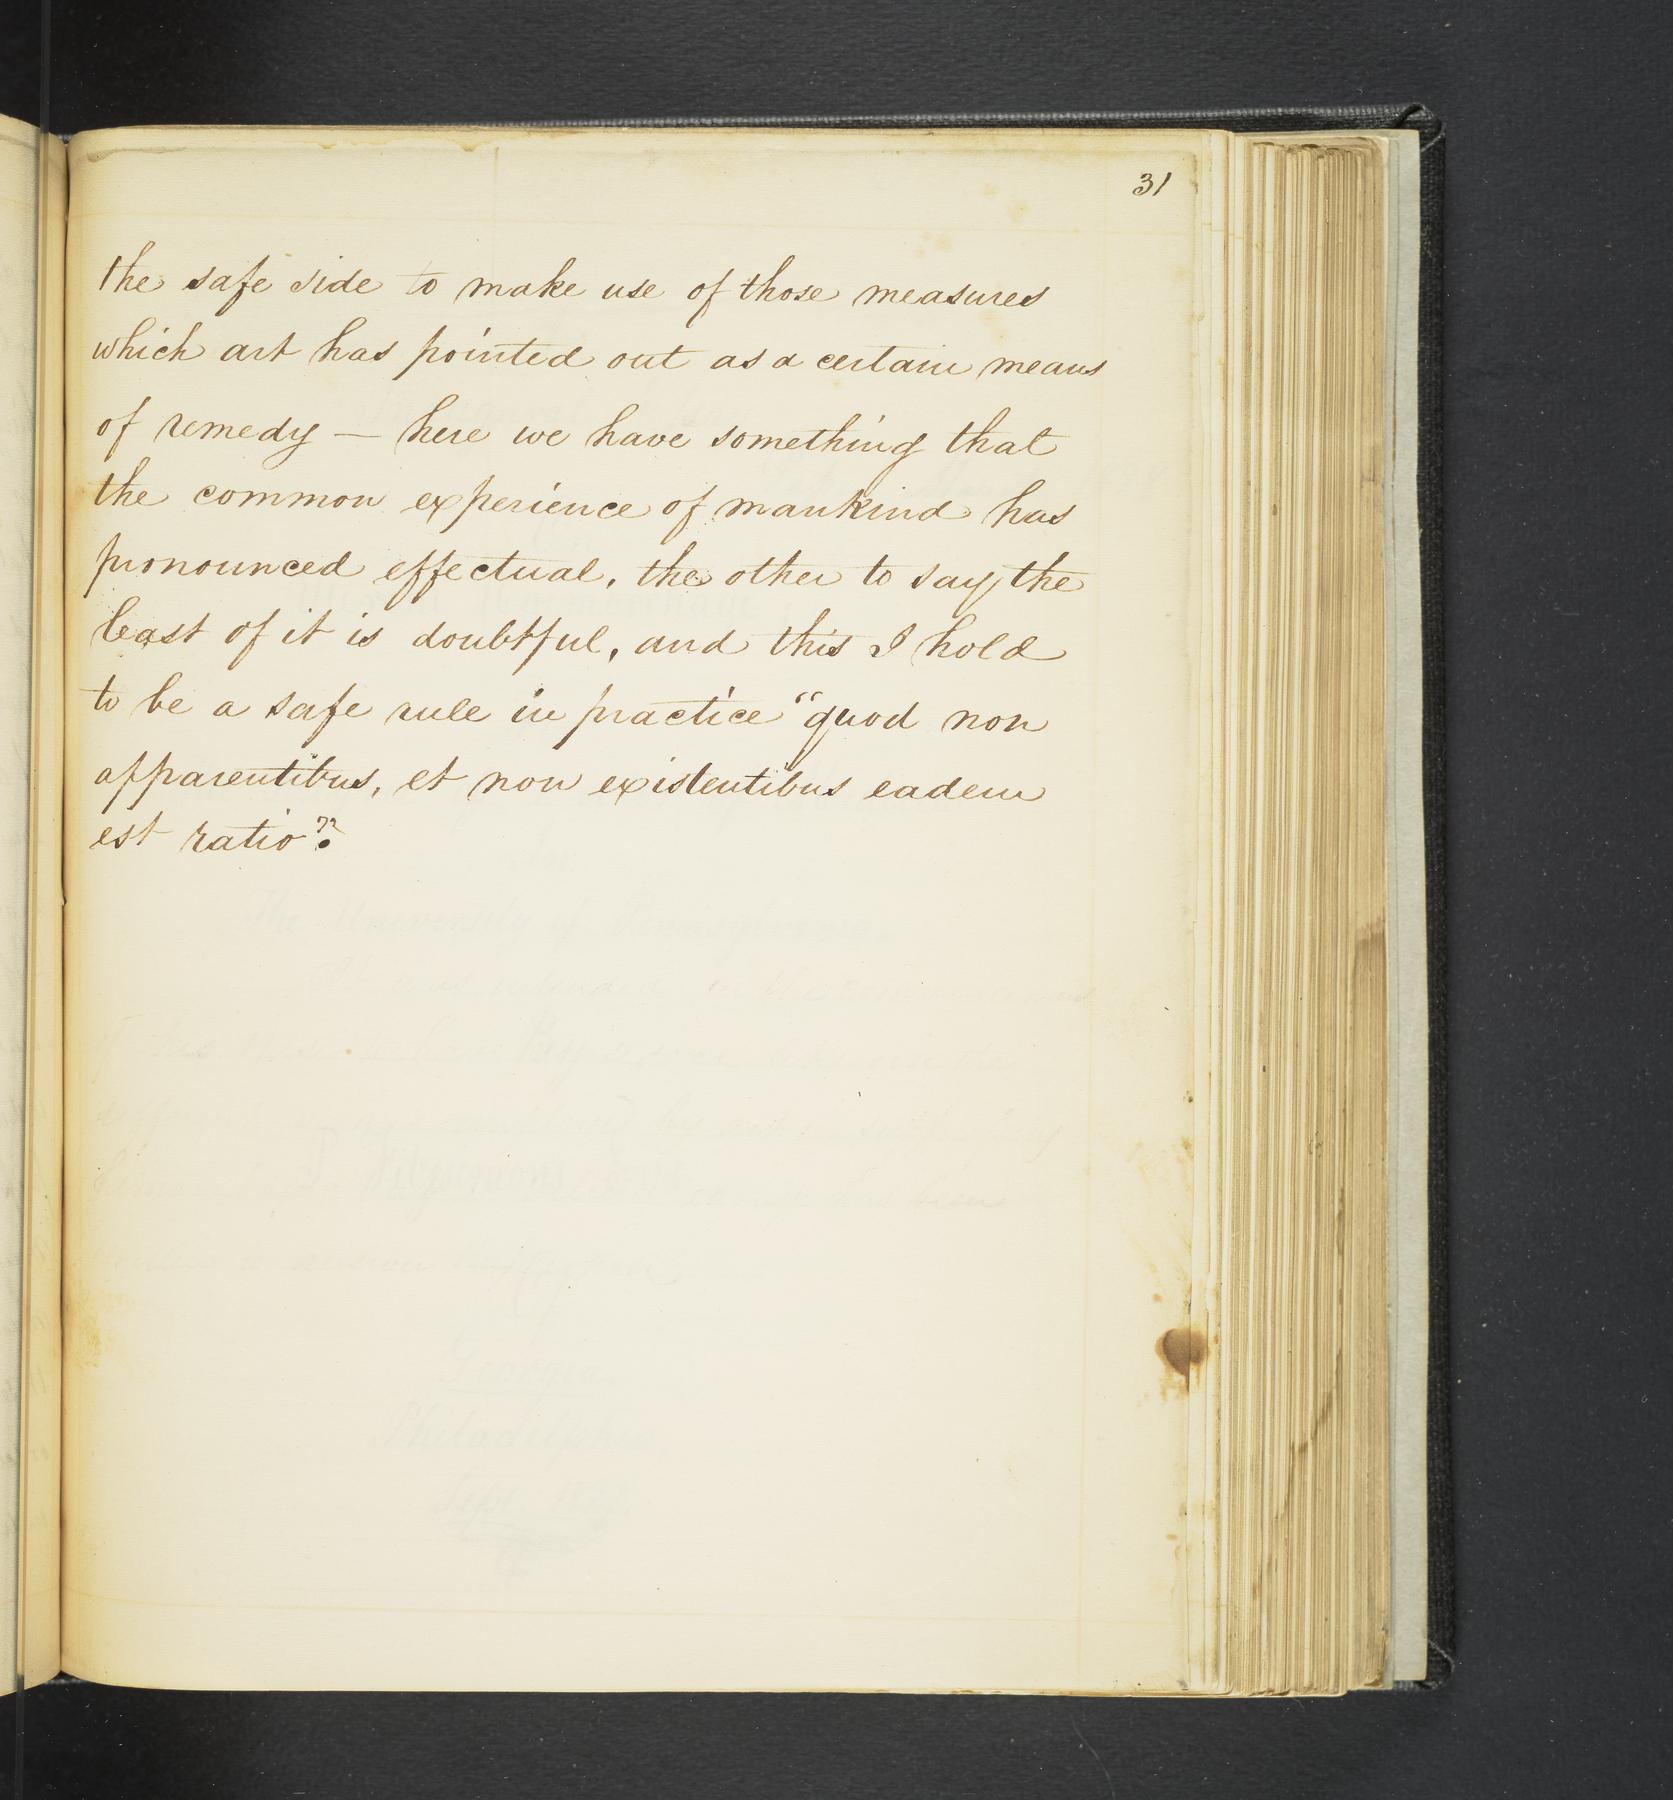 31
the safe side to make use of those measures
which art has pointed out as a certain means
of remedy — here we have something that
the common experience of mankind has
pronounced effectual, the other to say the
least of it is doubtful, and this I hold
to be a safe rule in practice "quod non
apparentibus, et non existentibus eadem
est ratio".
The University of Pennsylvania.
Georgia.
Philadelphia